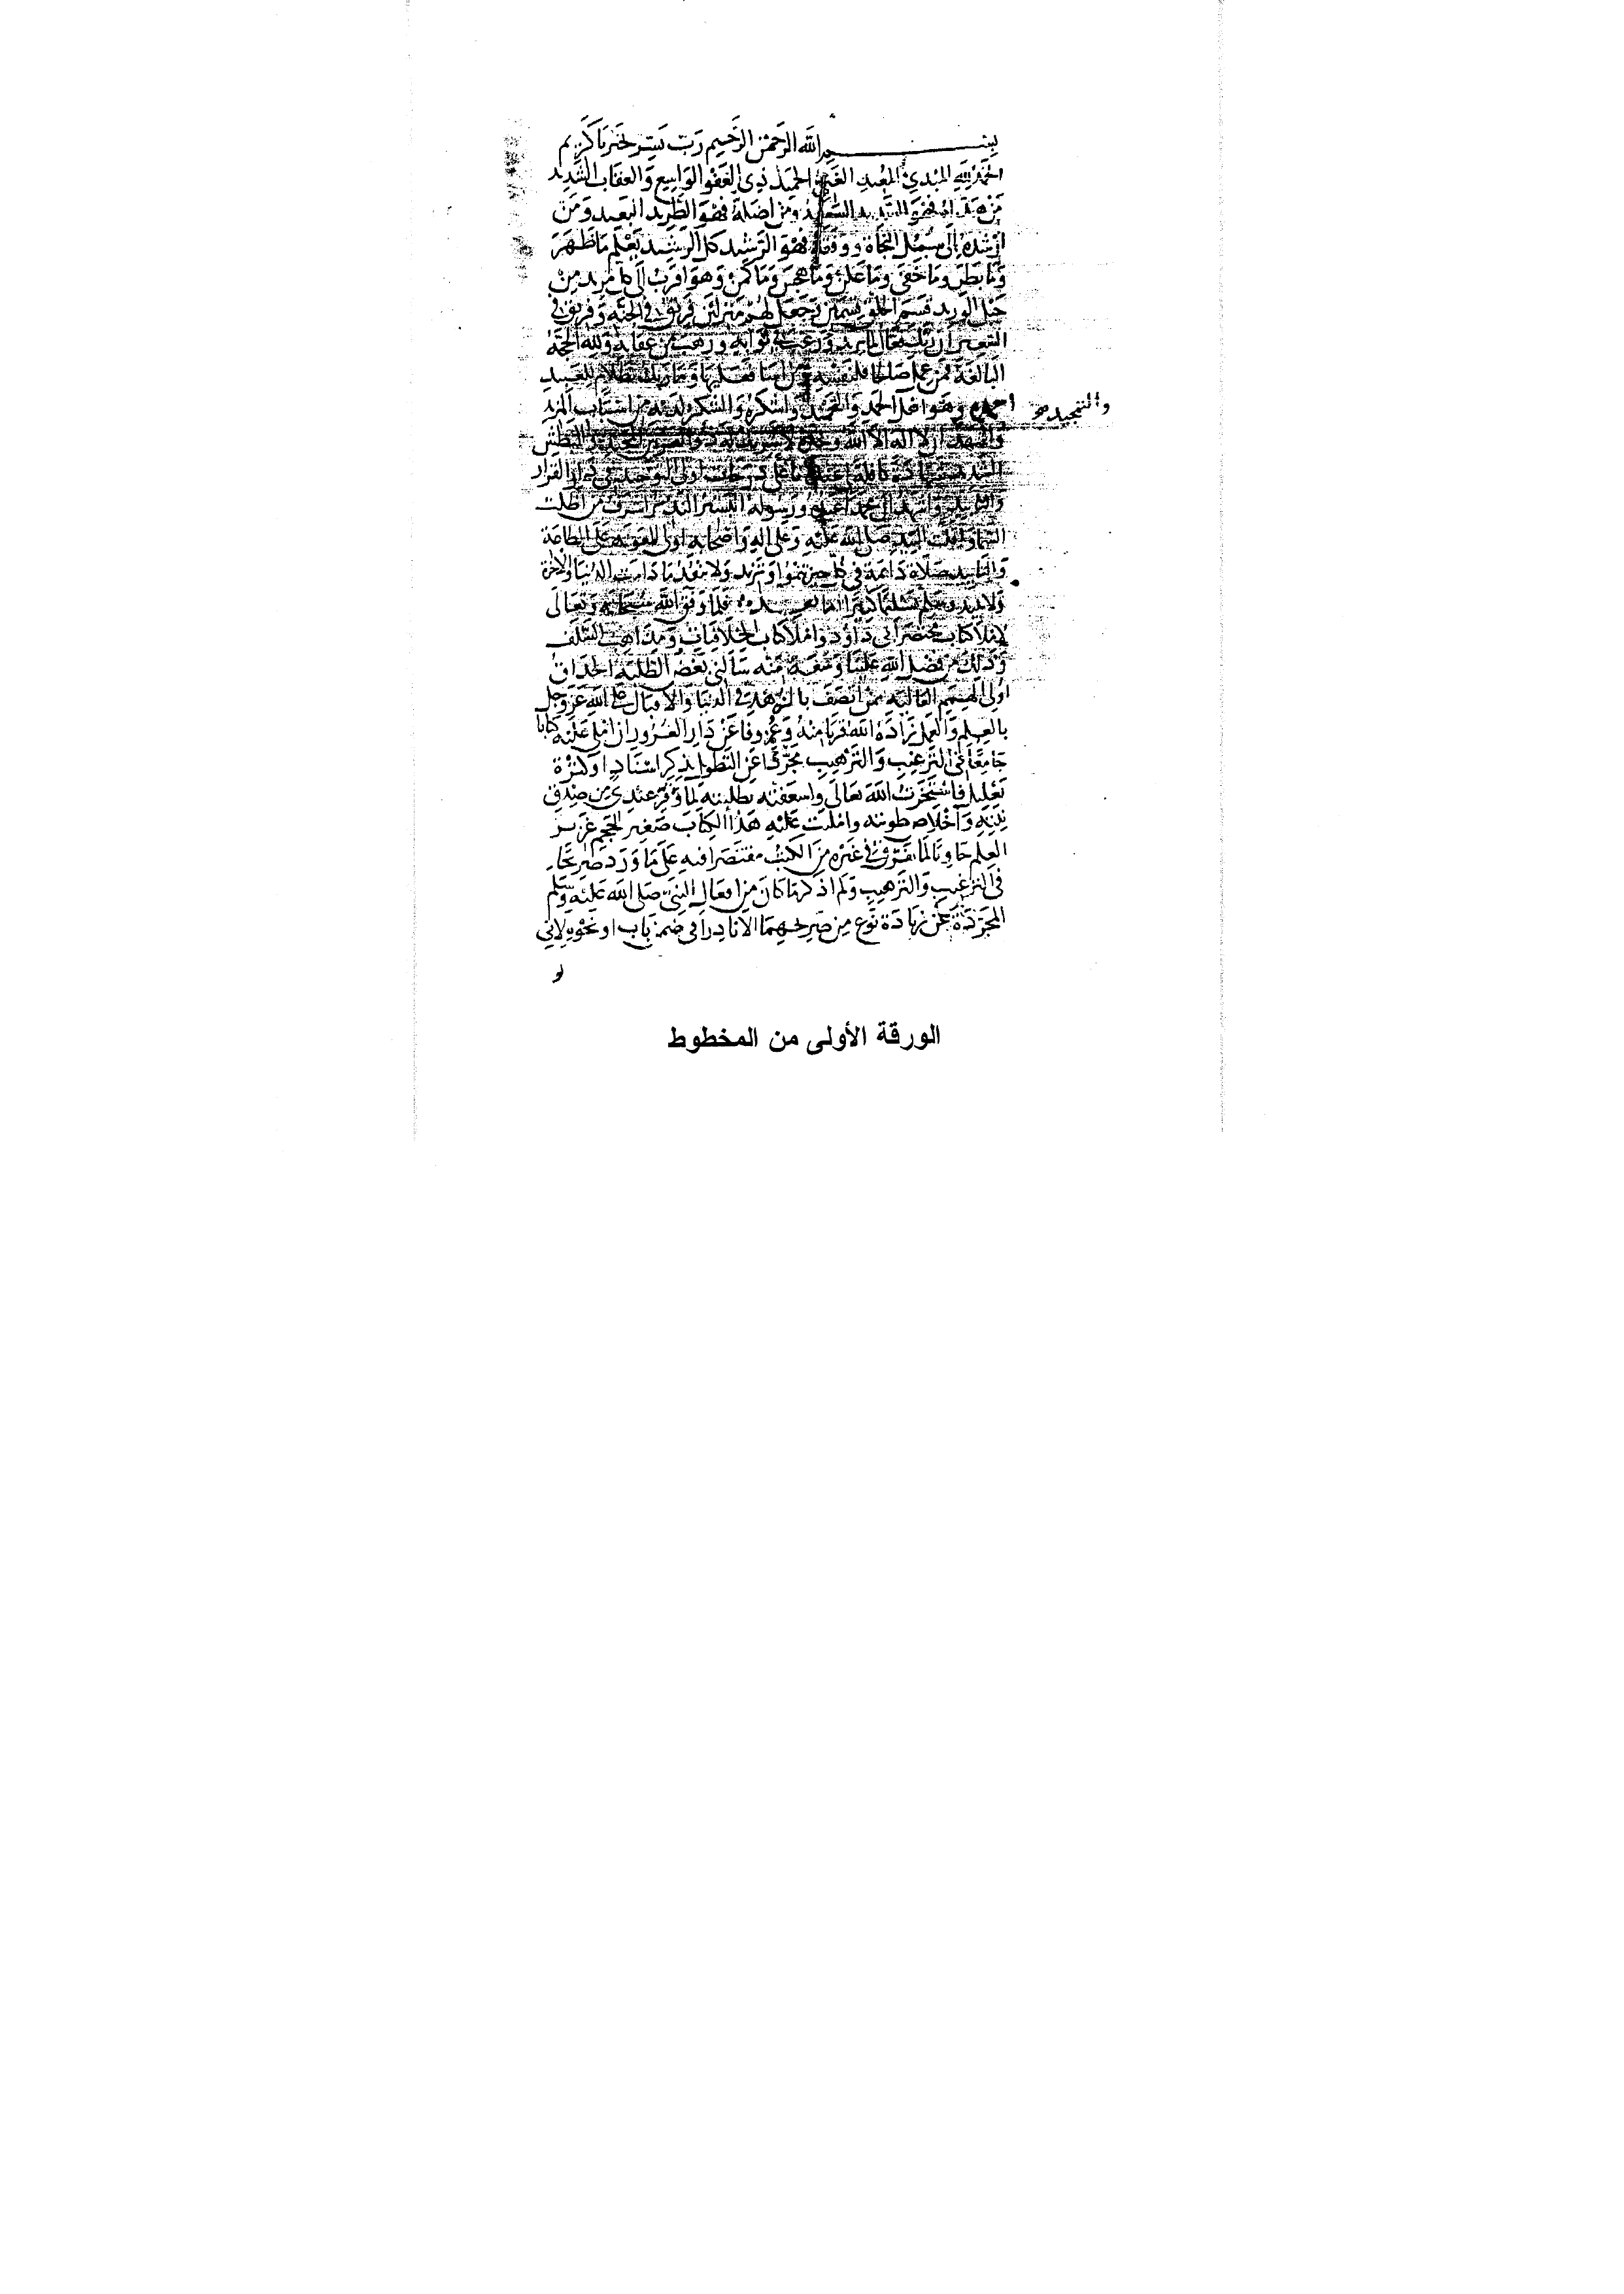 بسم الله الرحمن الرحيم رب يسر بخير يا كريم
الحمد لله المبدئ المعيد الغني الحميد ذي العفو الواسع والعقاب الشديد
من هداه فهو السعيد السديد ومن اضله فهو الطريد البعيد ومن
ارشده الى سبيل النجاة ووفقه فهو الرشيد كل الرشيد يعلم ما ظهر
وما بطن وما خفى وما علن وما هجن وما كمن وهو اقرب الى كل مريد من
حبل الوريد قسم الخلق قسمين وجعل لهم منزلتين فريق في الجنة وفريق في
السعير ان ربك فعال لما يريد ورغب في ثوابه ورهب من عقابه ولله الحجة
البالغة فمن عمل صالحا فلنفسه ومن اسا فعليها وما ربك بظلام للعبيد
احمده وهو اهل الحمد والتحميد واشكره والشكر لديه من اسباب المزيد
والتمجيد صح
واشهد ان لا اله الا الله وحده لا شريك له ذو العرش المجيد والبطش
الشديد شهادة في دار القرار
واشهد ان محمدا عبده ورسوله البشير النذير اشرف من اظلت
السما واقلت البيد صلى الله عليه وعلى اله واصحابه اولى المعونة على الطاعة
والتاييد صلاة دائمة في كل حين تنموا وتزيد ولا تنفد ما دامت الدنيا والاخرة
ولا تبيد وسلم تسليما كثيرا اما بعد فلما وفق الله سبحانه وتعالى
لاملا كتاب مختصر ابي داود واملا كتاب الخلافيات ومذاهب السلف
وذلك من فضل الله علينا وسعة منه سالني بعض الطلبة الحذاق
اولى الهمم العالية ممن اتصف بالزهد في الدنيا والاقبال على الله عز وجل
بالعلم والعمل زاده الله قربا منه وعزوفا عن دار الغرور ان املي عليه كتابا
جامعا في الترغيب والترهيب مجردا عن التطويل بذكر اسناد او كثرة
تعليل فاستخرت الله تعالى واسعفته بطلبته لما وقر عندي من صدق
نيته واخلاص طويته وامليت عليه هذا الكتاب صغير الحجم غزير
العلم حاويا لما تفرق في غيره من الكتب مقتصرا فيه على ما ورد صريحا
في الترغيب والترهيب ولم اذكر ما كان من افعال النبي صلى الله عليه وسلم
المجردة عن زيادة نوع من صريحهما الا نادرا في ضمن باب او نحوه لاني
الورقة الأولى من المخطوط